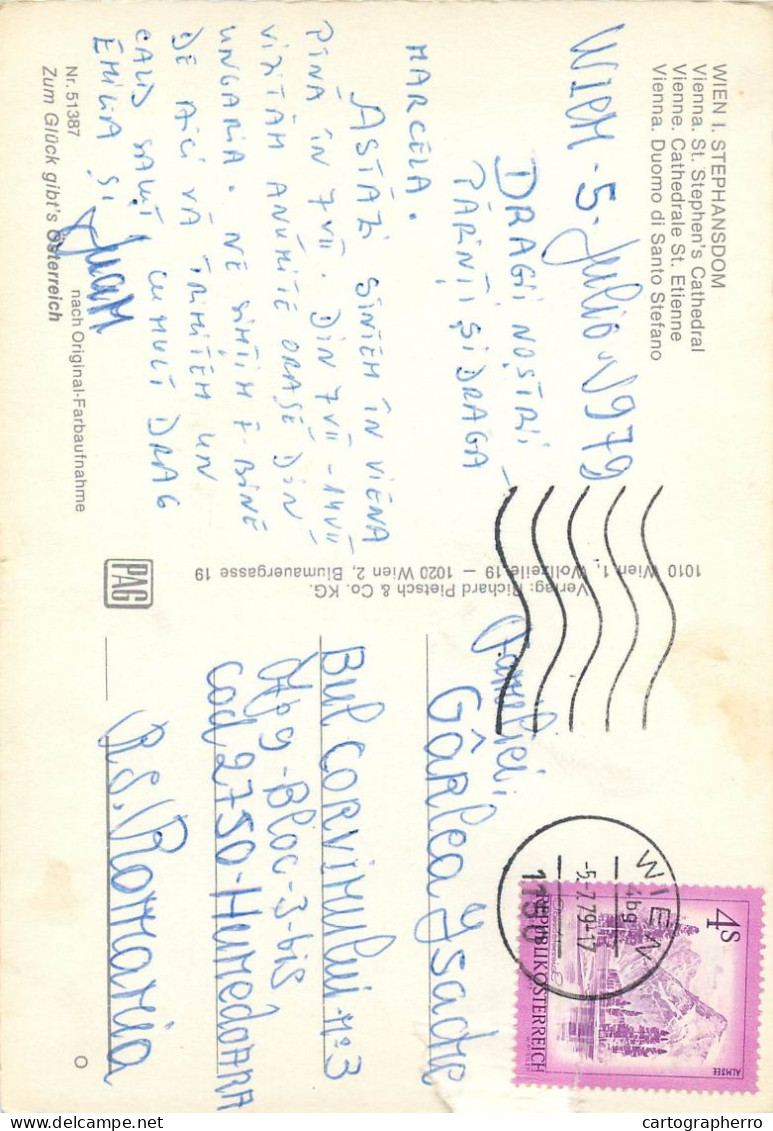 WIEN I. STEPHANSDOM
Vienna. St. Stephen's Cathedral
Vienne. Cathedrale St. Etienne
Vienna. Duomo di Santo Stefano
WIEM - 5. Julio - 1979
DRAGII NOȘTRII
PĂRINȚI ȘI DRAGA
MARCELA.
ASTĂZI SÎNTEM ÎN VIENA
PÎNĂ ÎN 7 VII. DIN 7 VII - 14 VII
VIZITĂM ANUMITE ORAȘE DIN
UNGARIA. NE SIMȚIM F. BINE
DE AICI VĂ TRIMITEM UN
CALD SALUT CU MULT DRAG
EMILIA ȘI
Juan
Nr. 51387
nach Original-Farbaufnahme
Zum Glück gibt's Österreich
Verlag: Richard Pietsch & Co. KG.
1010 Wien 1, Wollzeile 19 — 1020 Wien 2, Blumauergasse 19
PAG
Familiei,
Gârlea Ysadre
Bul CORVIMului nº 3
Bloc-3-bis
cod 2750-HuneDOARA
R.S. Romania
O
WIEN
-5.-7.79-17
4S
REPUBLIK ÖSTERREICH
ALMSEE
cartographerro